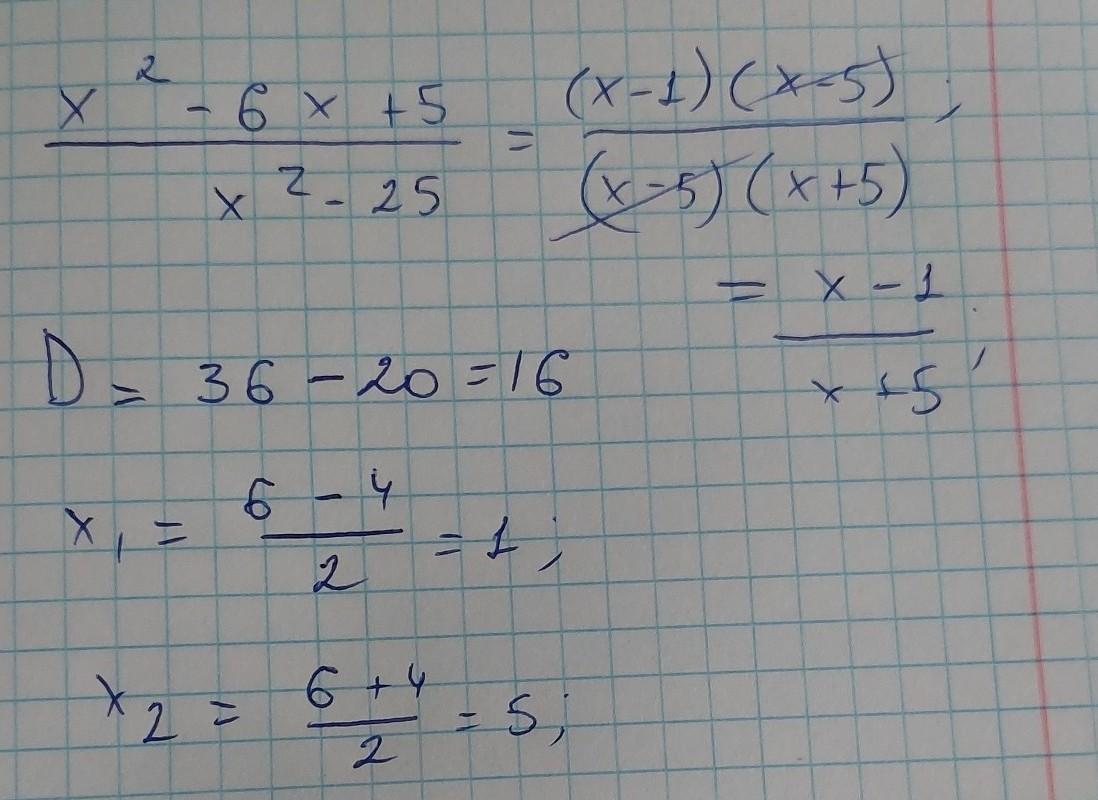 x² - 6x + 5 / x² - 25 = (x-1)(x-5) / (x-5)(x+5) ;
= x - 1 / x + 5 ;
D = 36 - 20 = 16
x₁ = 6 - 4 / 2 = 1 ;
x₂ = 6 + 4 / 2 = 5 ;